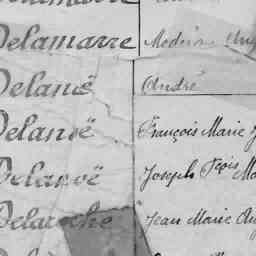 Delamarre Medéric Aug
Delanoë André
Delanoë François Marie J
Delanoë Joseph Fçois Ma
Delaroche Jean Marie Aug